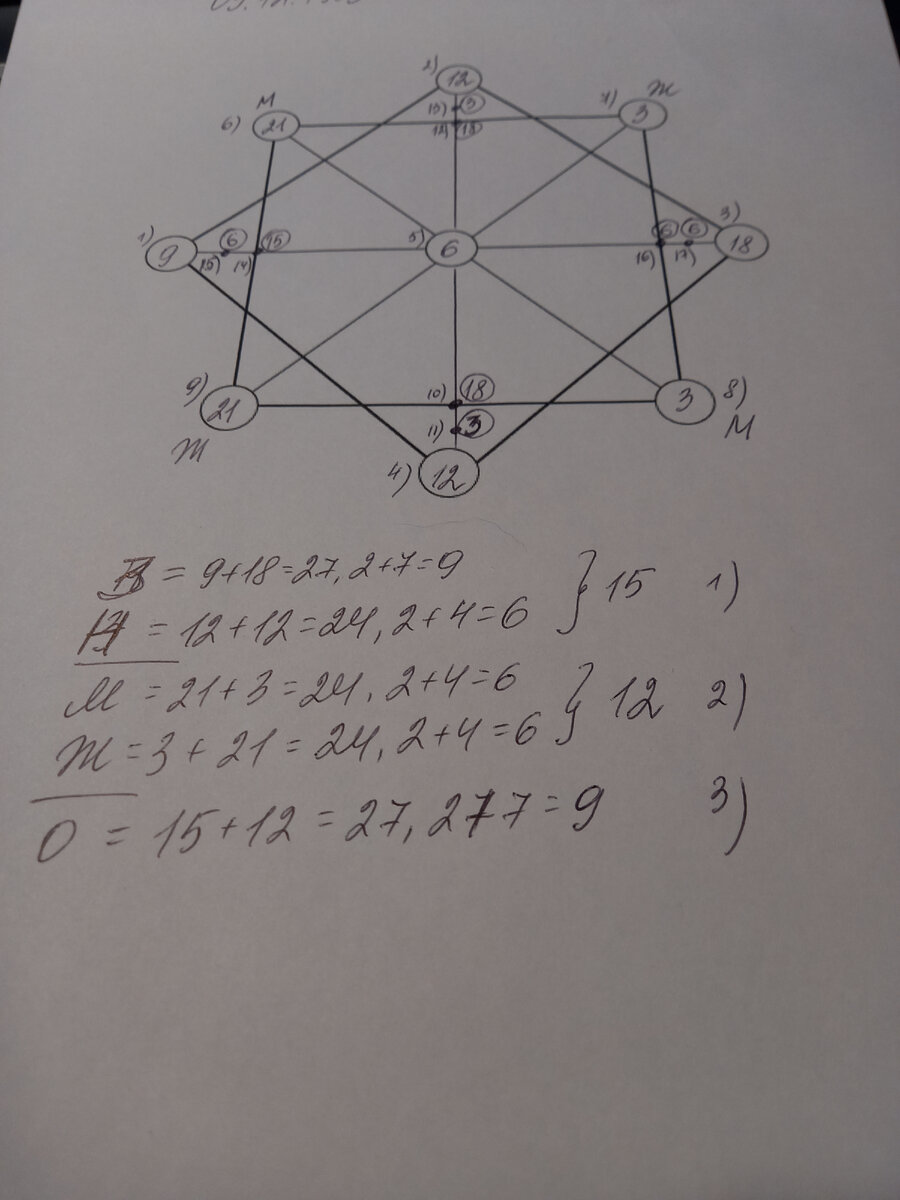 2) 12
13) 3
12) 18
М
6) 21
7) 3 Ж
1) 9
15) 6
14) 15
5) 6
16) 6
17) 6
3) 18
9) 21
Ж
10) 18
11) 3
8) 3
М
4) 12
= 9+18=27, 2+7=9
= 12+12=24, 2+4=6 } 15 1)
М =21+3=24, 2+4=6
Ж =3+21=24, 2+4=6 } 12 2)
О = 15+12=27, 2+7=9 3)